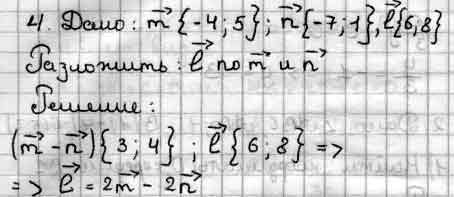 4. Дано: m⃗ {-4; 5}; n⃗ {-7; 1}, ℓ⃗ {6; 8}
Разложить: ℓ⃗ по m⃗ и n⃗
Решение:
(m⃗ - n⃗) {3; 4} ; ℓ⃗ {6; 8} =>
=> ℓ⃗ = 2m⃗ - 2n⃗